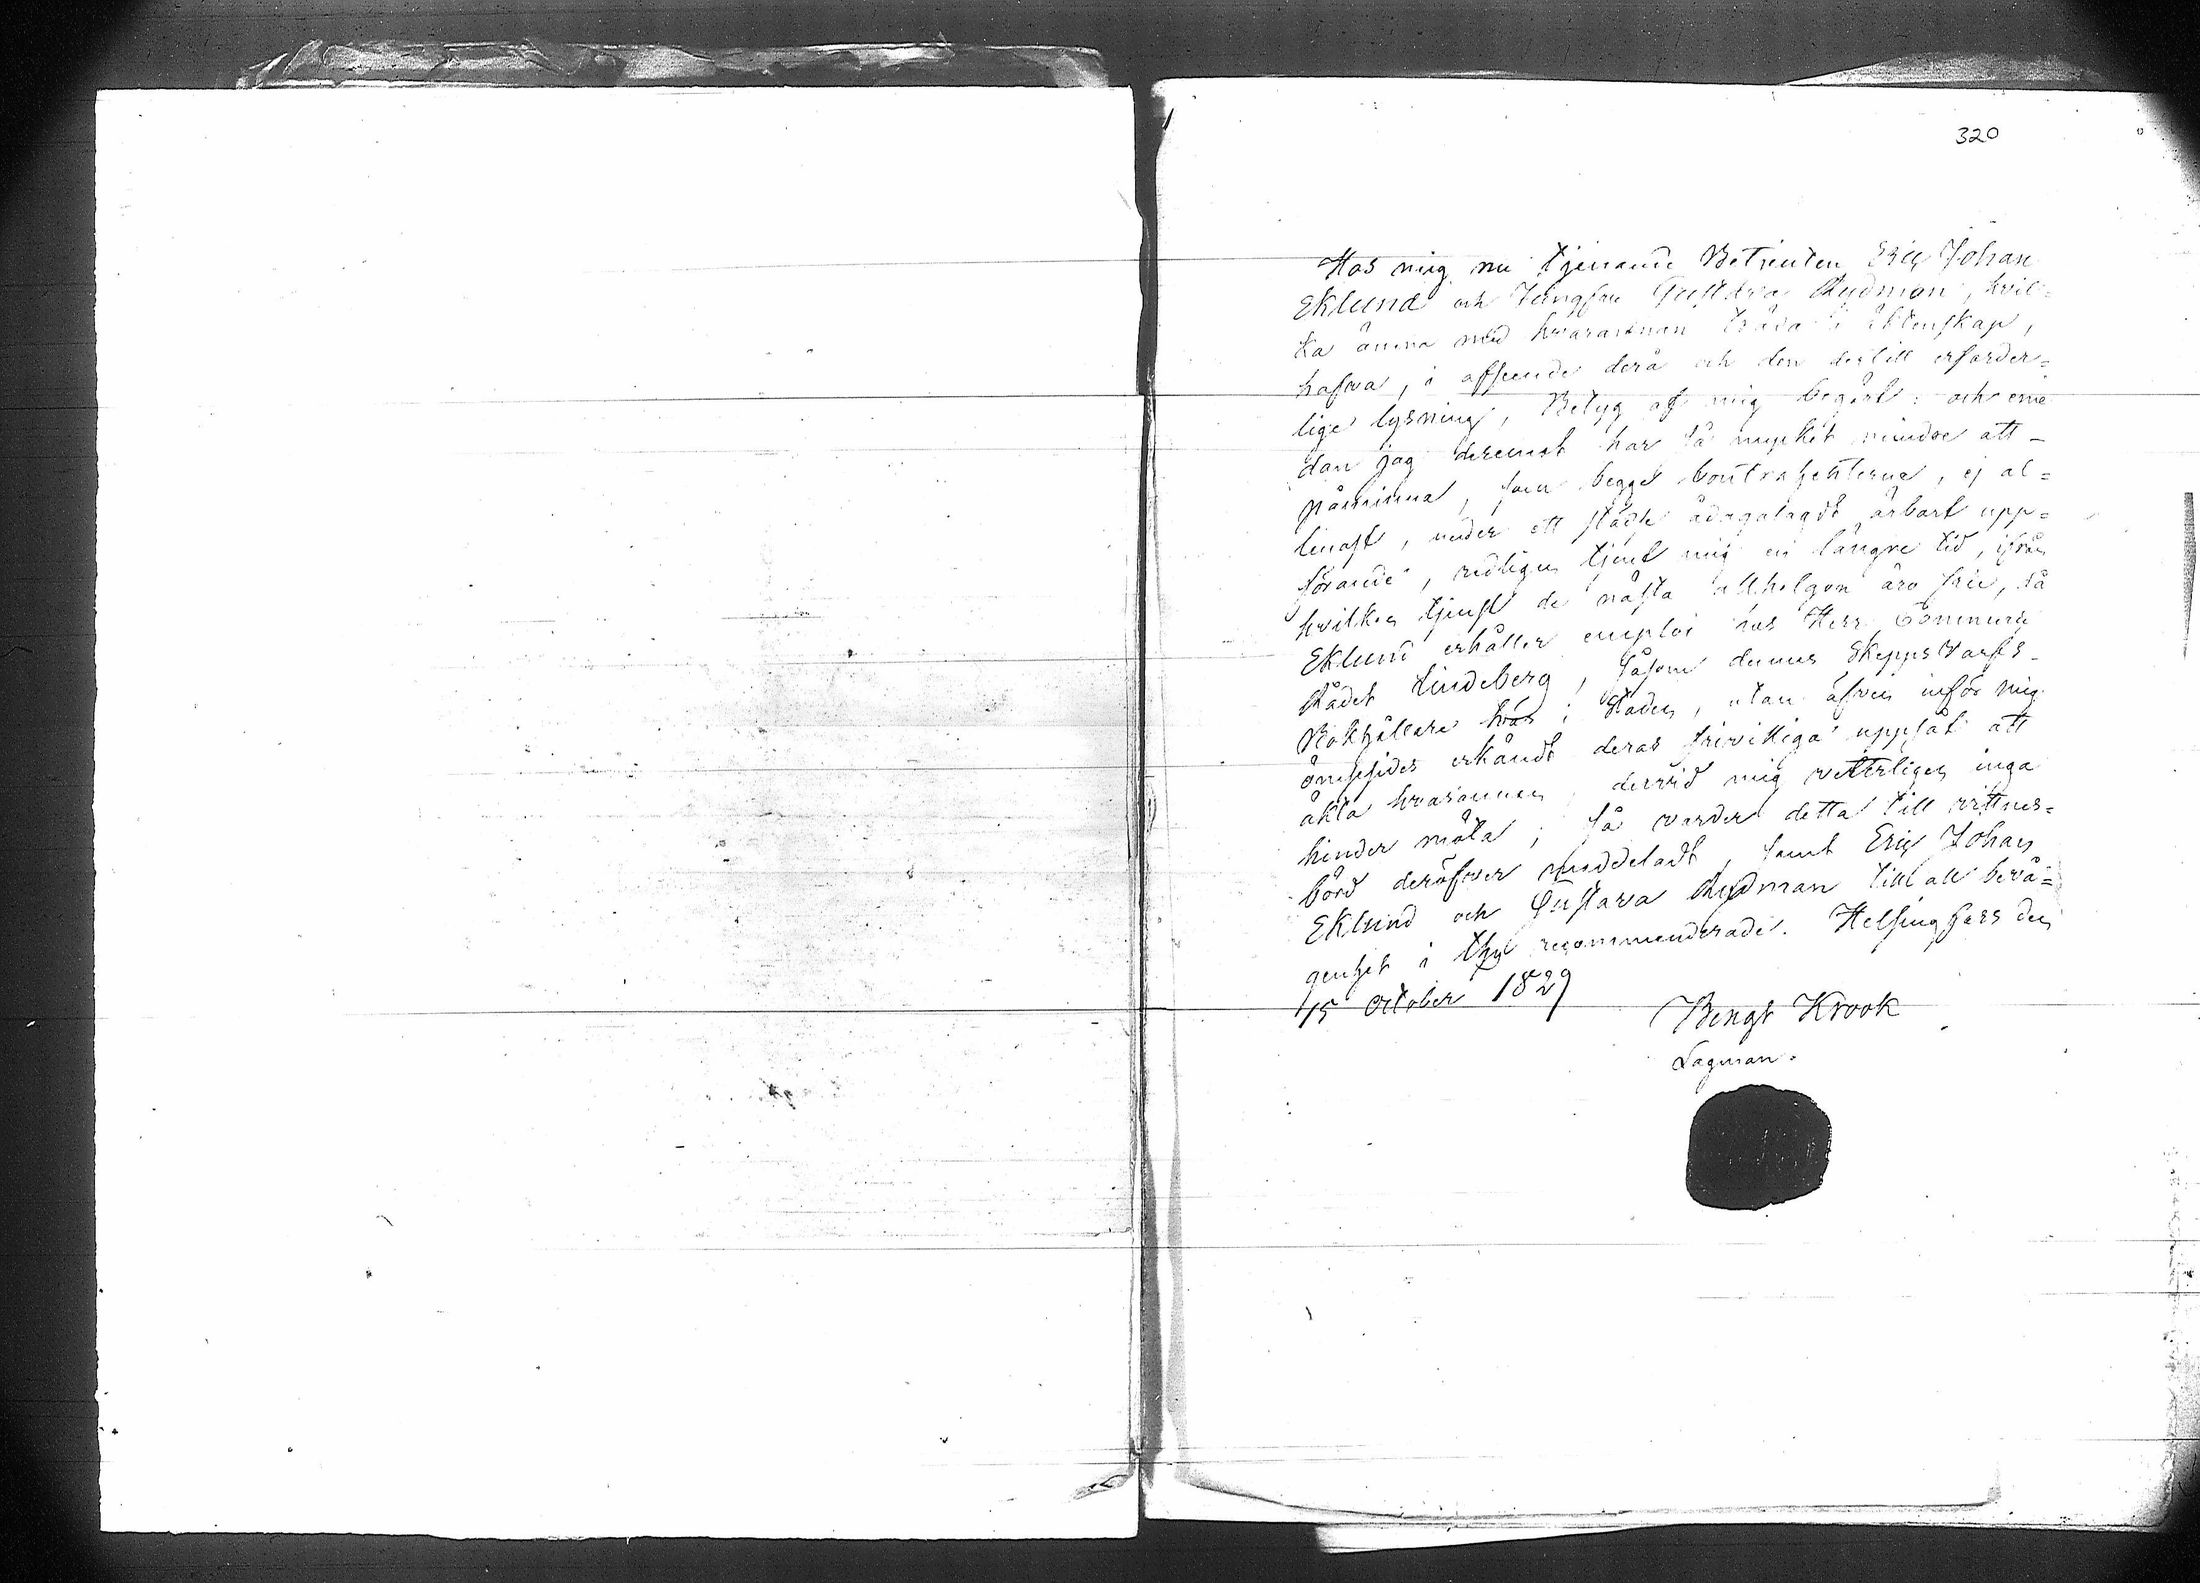 320
Hos mig nu tjenande Betjenten Eric Johan
Eklund och Jungfru Gustava Rydman, hvil=
ka ämna med hvarannan träda i äktenskap,
hafva, i afseende derå och den dertill erforder=
lige lysning, Betyg af mig begärt: och eme
dan jag deremot har så mycket mindre att
påminna, som begge Contrahenterna, ej al=
lenast, under ett städse ådagalagdt ärbart upp=
förande, redligen tjent mig en längre tid, ifrån
hvilken tjenst de nästa allhelgon äro frie, då
Eklund erhåller emploi hos Herr Commerce
Rådet Lindeberg, såsom dennes Skeppsvarfs-
Bokhållare här i Staden, utan äfven inför mig
ömsesides erkändt deras frivilliga uppsåt att
äkta hvarannan, dervid mig vetterligen inga
hinder möta; så varder detta till vittnes=
börd deröfver meddeladt, samt Eric Johan
Eklund och Gustava Rydman till all bevå=
genhet i recommenderade. Helsingfors den
15 October 1829
Bengt Krook
Lagman.